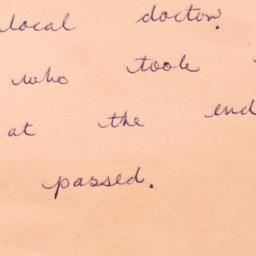 local doctor.
who took
at the end
passed.